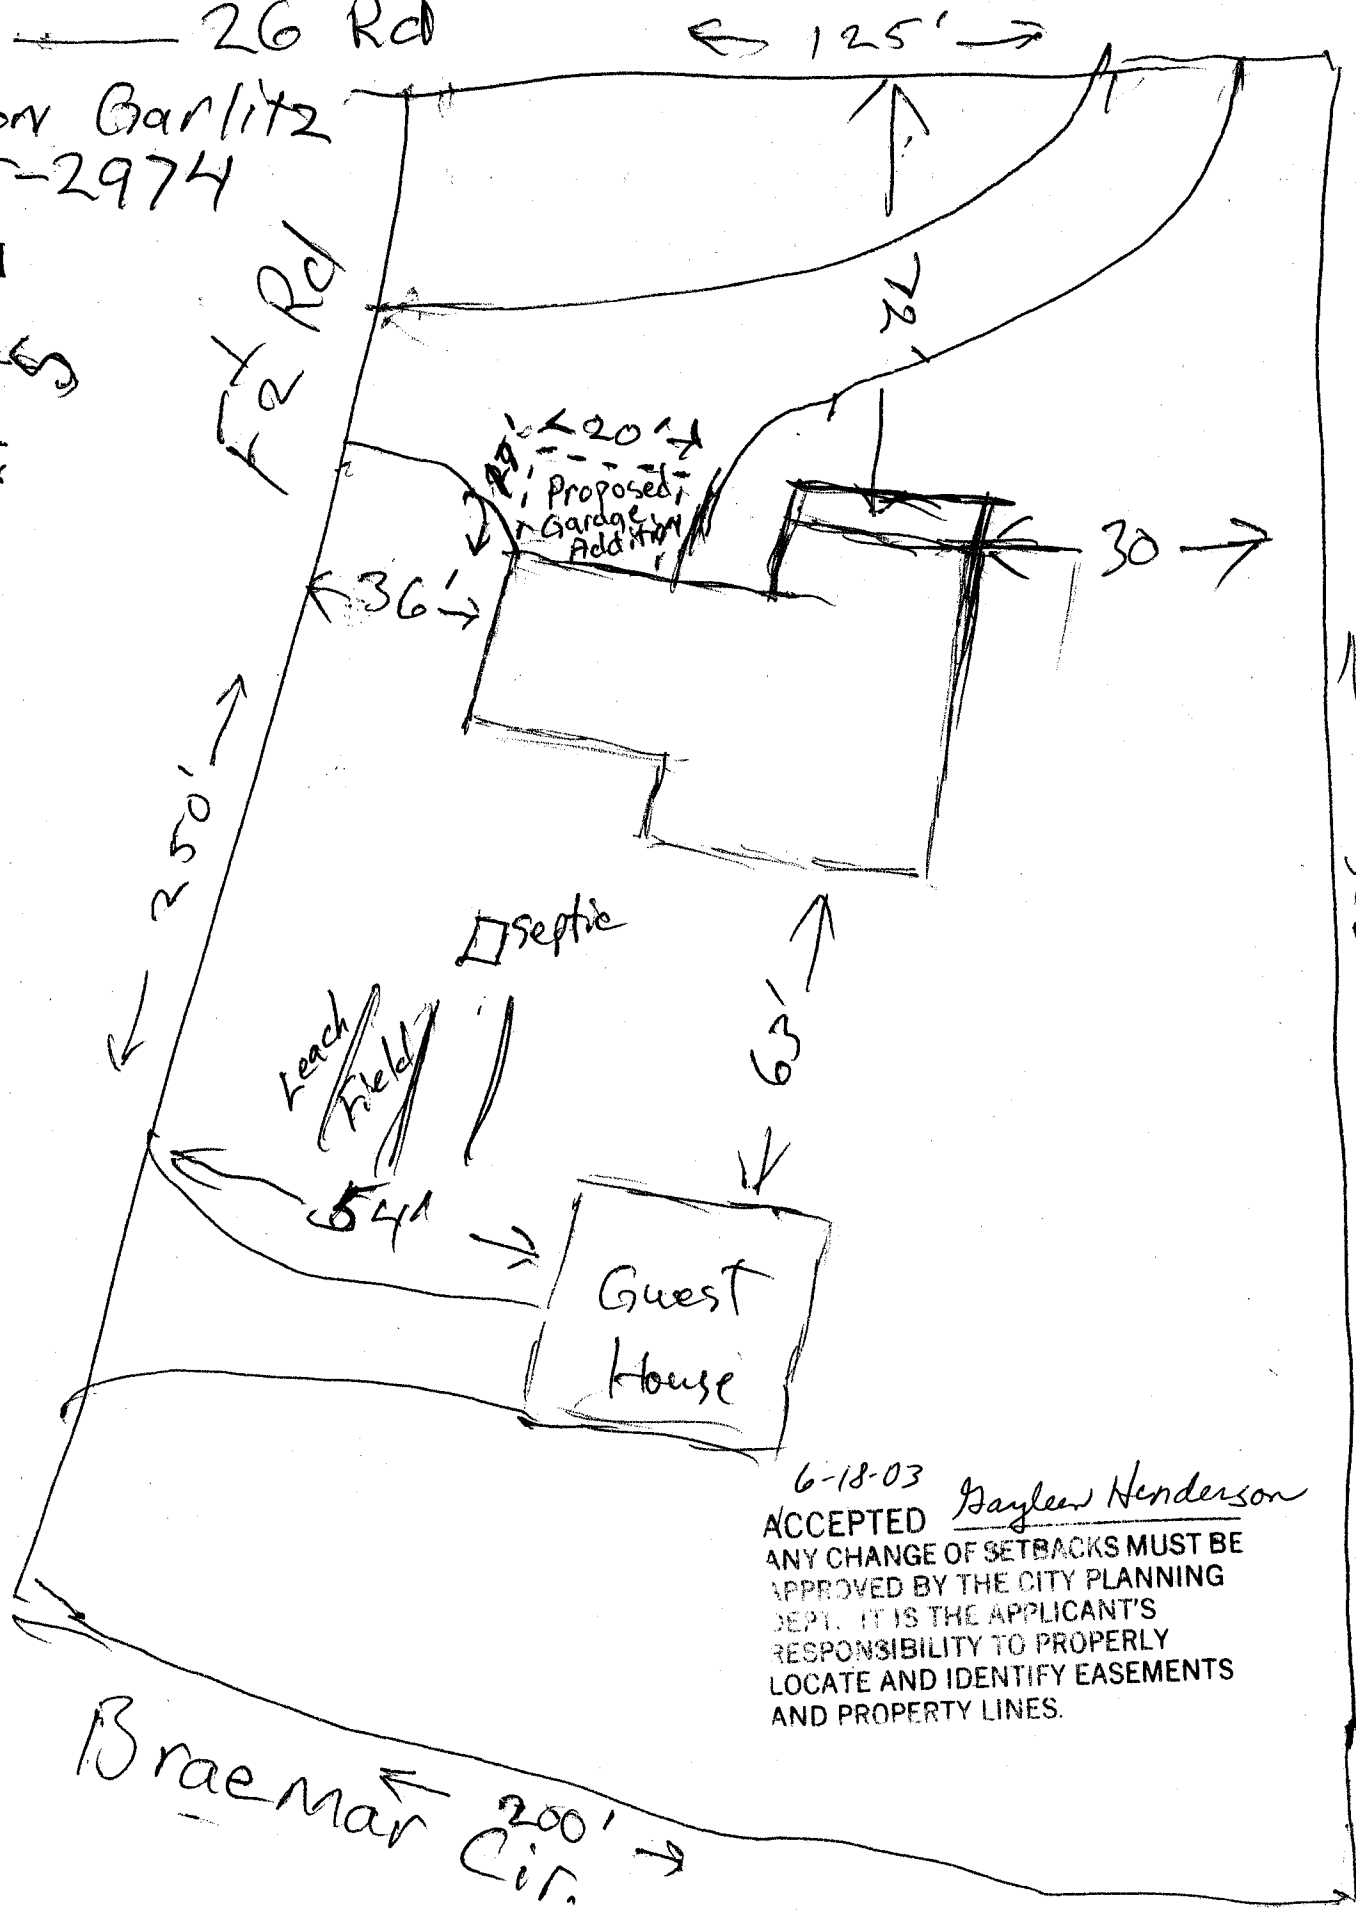 26 Rd
125'
Garlitz
-2974
F 1/2 Rd
5
20'
Proposed
Garage
Addition
30
36'
250'
septic
Leach
Field
63'
54'
Guest
House
6-18-03
ACCEPTED Gayleen Henderson
ANY CHANGE OF SETBACKS MUST BE
APPROVED BY THE CITY PLANNING
DEPT. IT IS THE APPLICANT'S
RESPONSIBILITY TO PROPERLY
LOCATE AND IDENTIFY EASEMENTS
AND PROPERTY LINES.
Braemar Cir.
200'